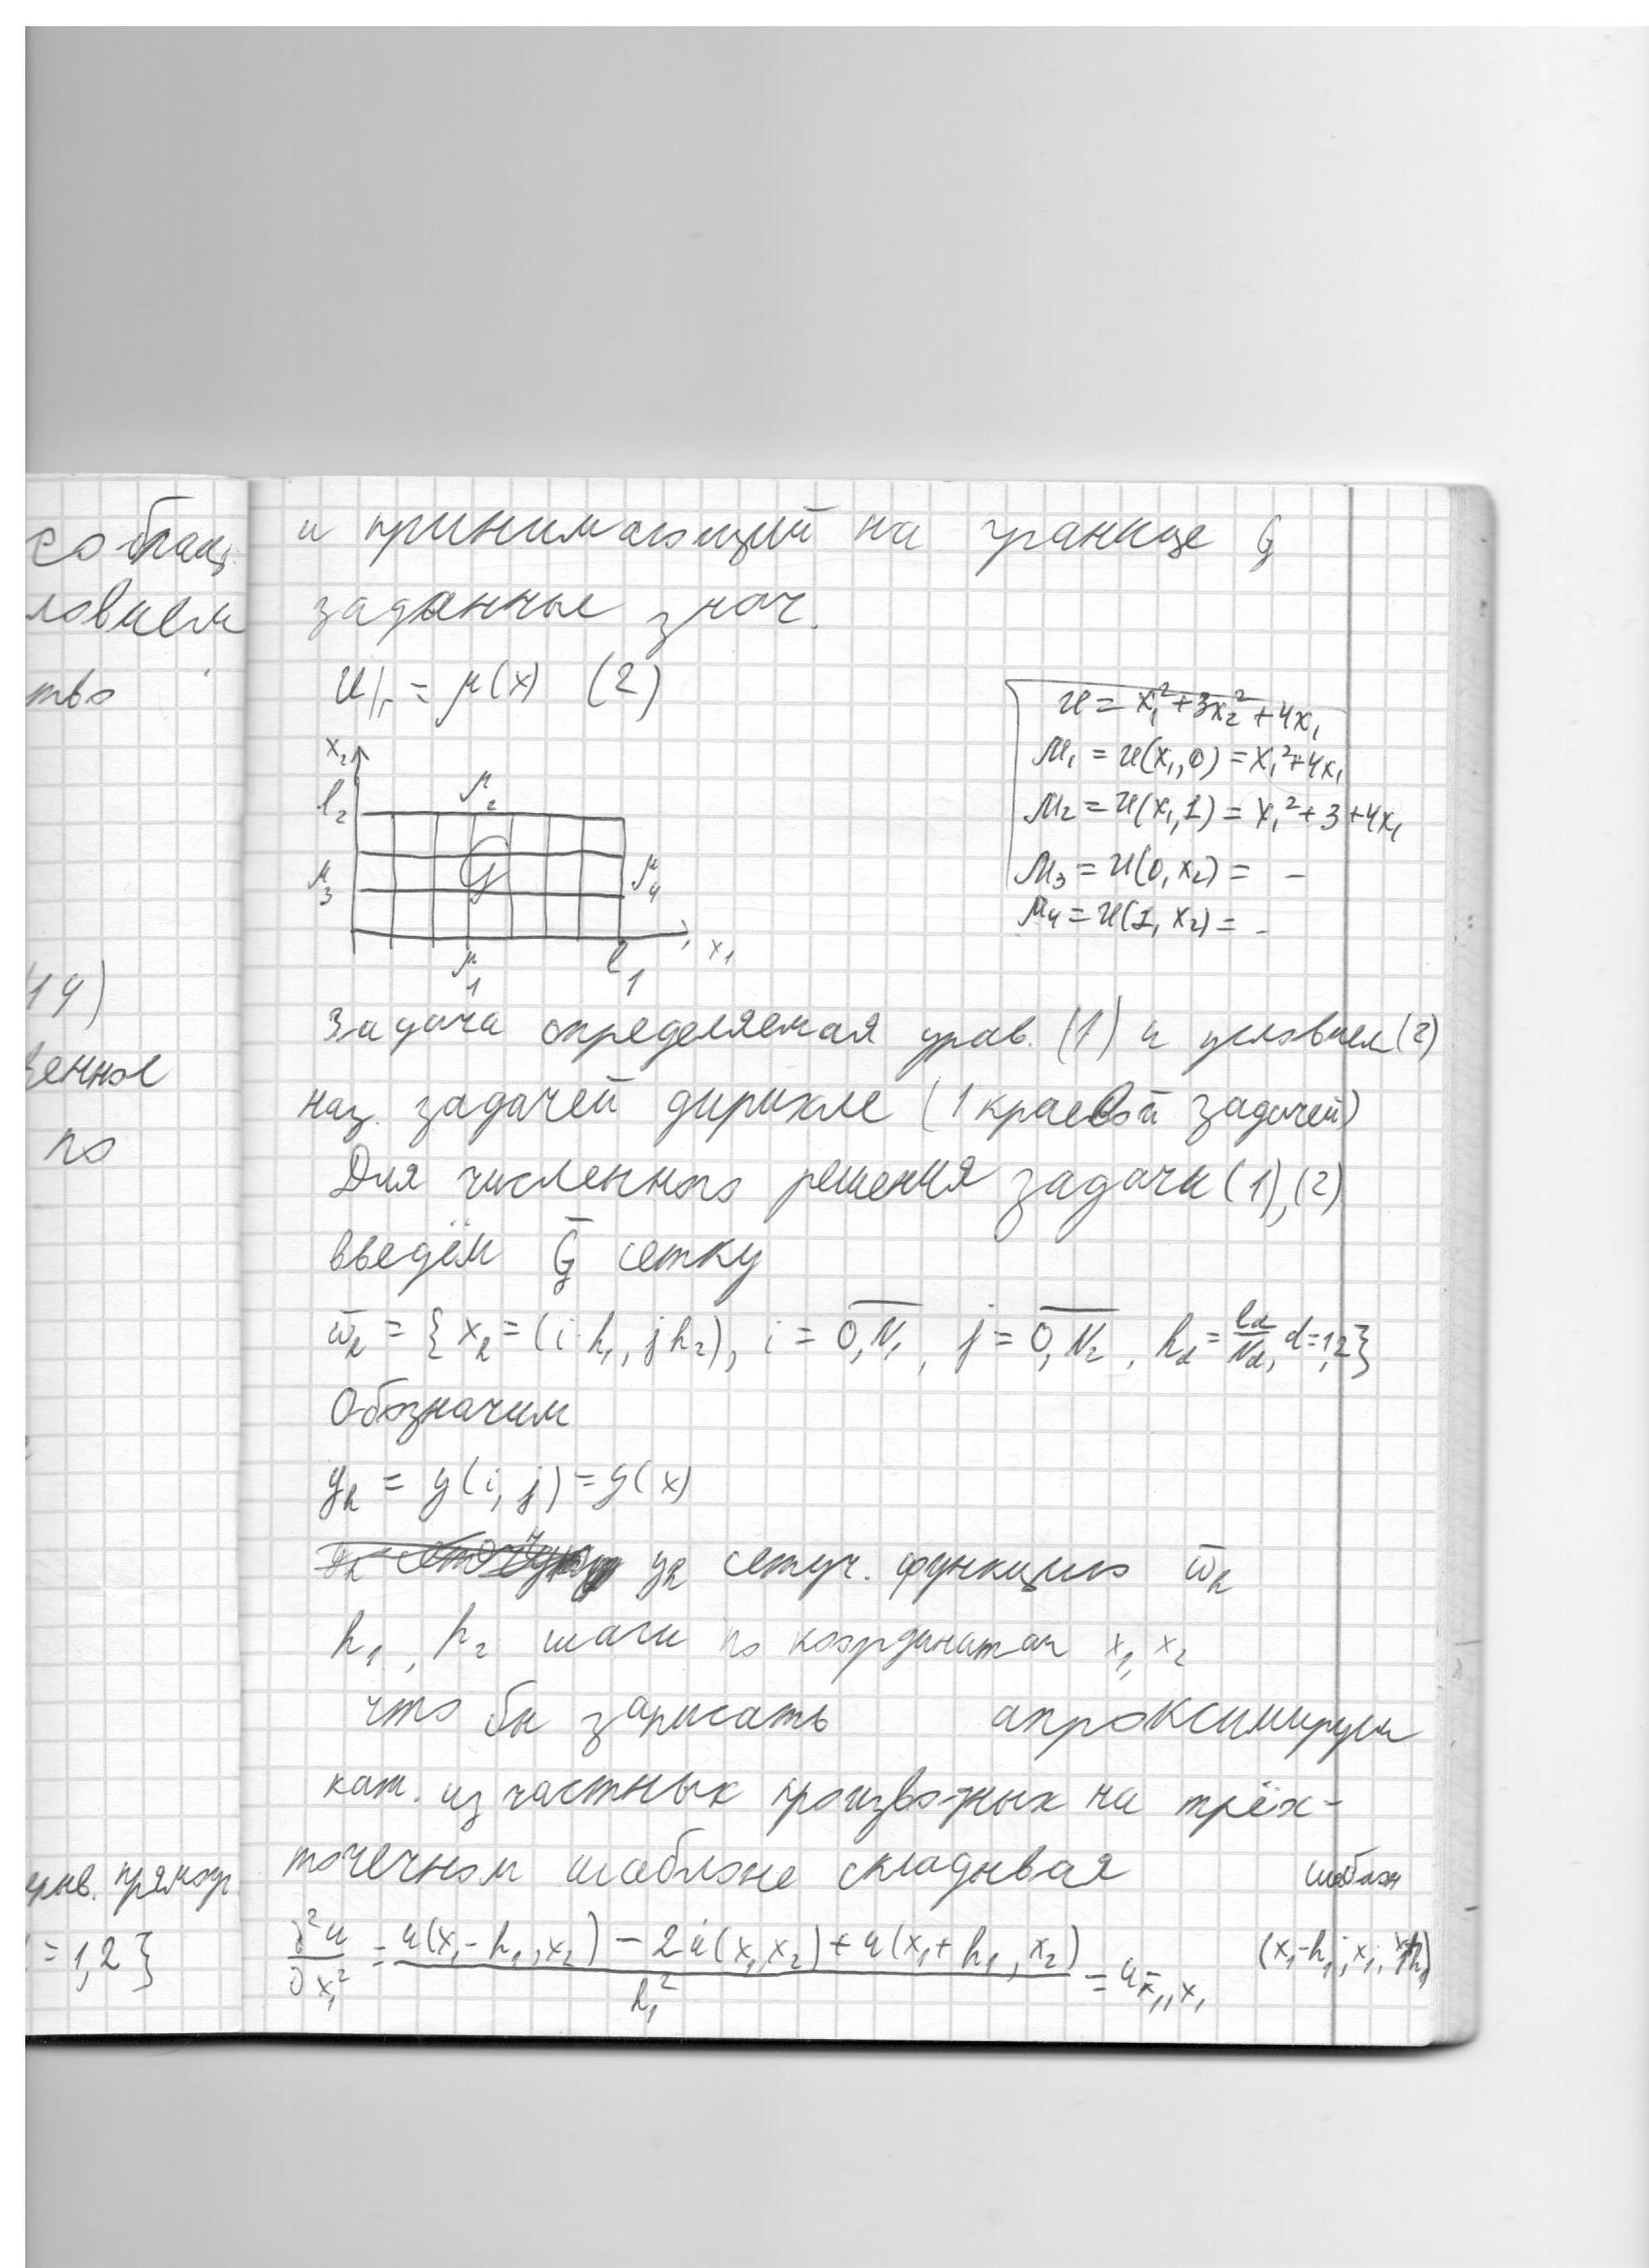 со
ловием
тво
19)
венное
по
прямоуг.
=1,2}
и принимающий на границе G
заданные знач.
u|г = μ(x) (2)
x₂
l₂
μ₂
μ₃
G
μ₄
μ₁
l₁
x₁
u = x₁² + 3x₂² + 4x₁
μ₁ = u(x₁,0) = x₁² + 4x₁
μ₂ = u(x₁,1) = x₁² + 3 + 4x₁
μ₃ = u(0, x₂) = –
μ₄ = u(1, x₂) = –
Задача определяемая урав. (1) и условием (2)
наз. задачей дирихле (1 краевой задачей)
Для численного решения задачи (1),(2)
введём G̅ сетку
ω̅ₕ = {xₕ = (i·h₁, jh₂), i = 0,N₁, j = 0,N₂, h_α = l_α/N_α, α=1,2}
Обозначим
yₕ = y(i, j) = y(x)
yₕ сеточ. функцию ω̅ₕ
h₁, h₂ шаги по координатам x₁, x₂
что бы записать апроксимируем
каж. из частных производных на трёх-
точечном шаблоне складывая
шаблон
∂²u/∂x₁² = (u(x₁-h₁, x₂) - 2u(x₁,x₂) + u(x₁+h₁, x₂))/h₁² = u_x̅₁,x₁
(x₁-h₁; x₁; x₁+h₁)